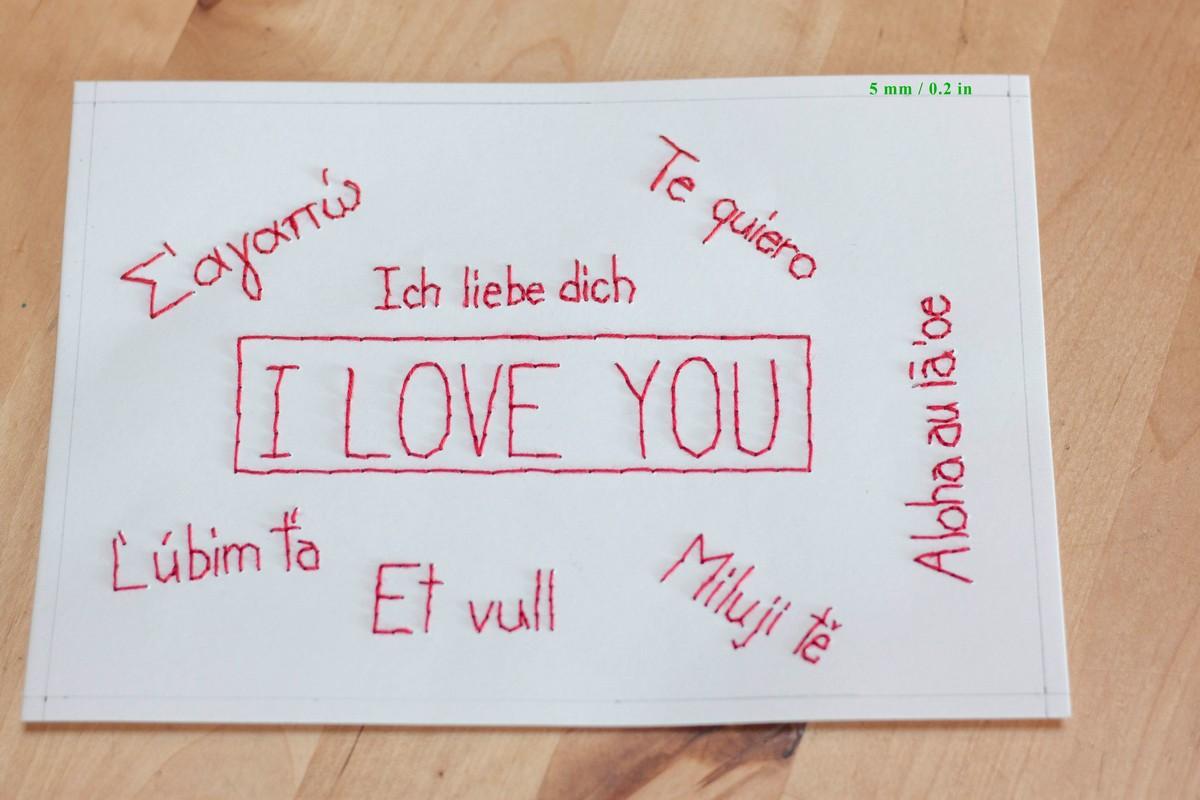 5 mm / 0.2 in
Σ'αγαπώ
Te quiero
Ich liebe dich
I LOVE YOU
Aloha au iā'oe
Ľúbim ťa
Et vull
Miluji tě